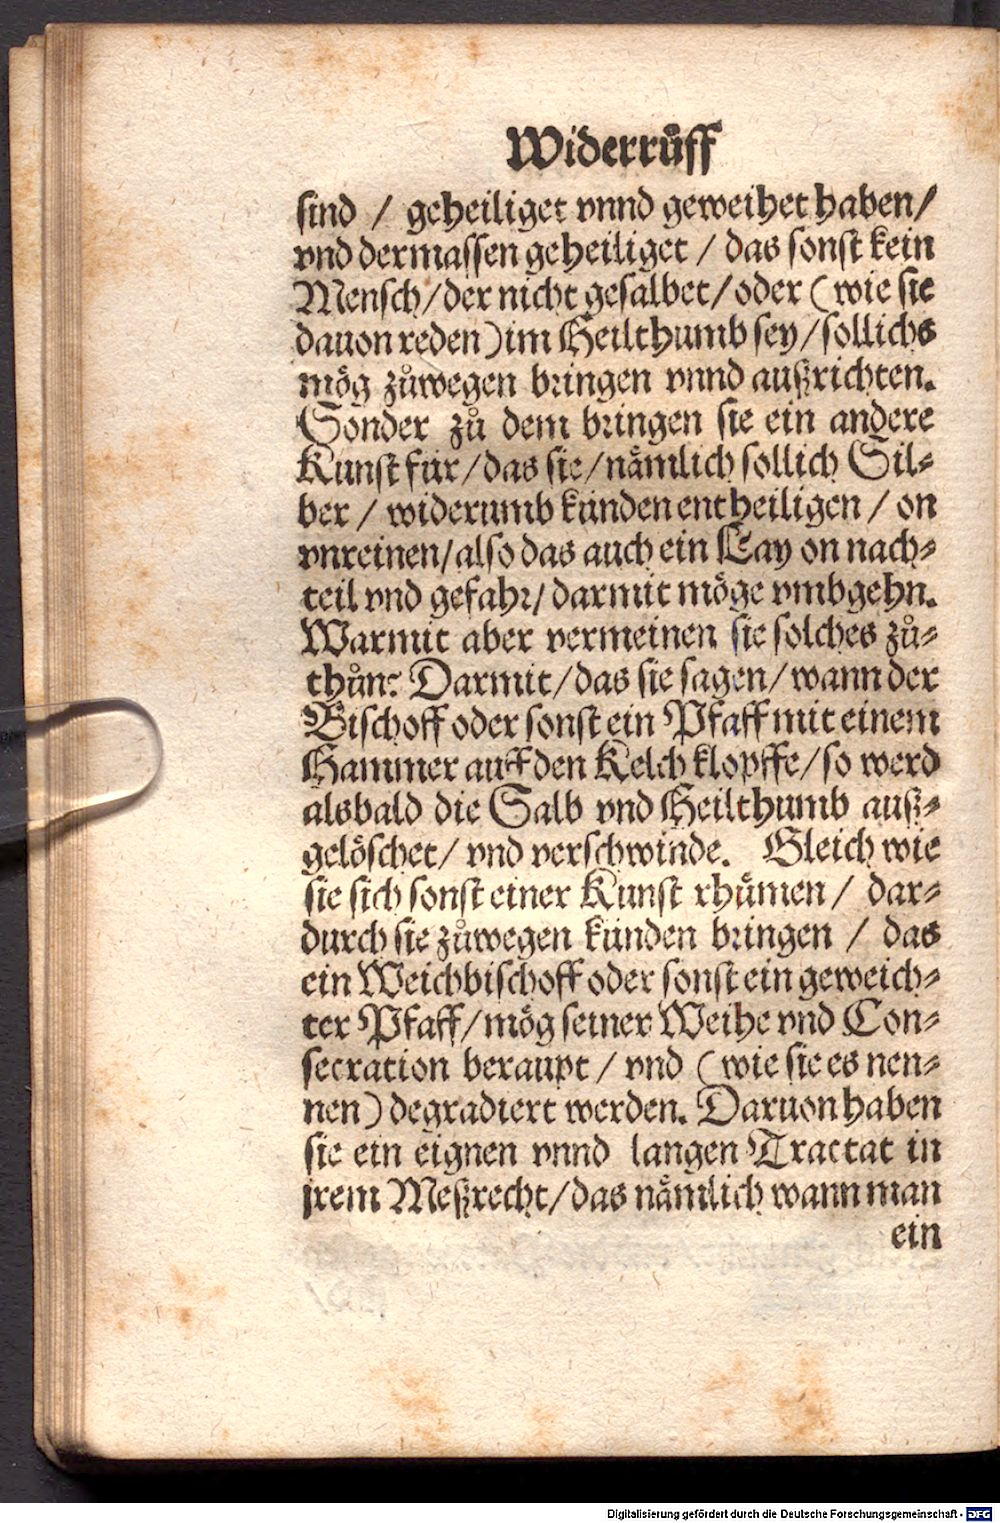 Widerrůff
sind / geheiliget vnnd geweihet haben/
vnd dermassen geheiliget / das sonst kein
Mensch/der nicht gesalbet/oder (wie sie
dauon reden)im Heilthumb sey/sollichs
mög zůwegen bringen vnnd außrichten.
Sonder zů dem bringen sie ein andere
Kunst für/das sie/nämlich sollich Sil⸗
ber / widerumb künden entheiligen / on
vnreinen/also das auch ein Lay on nach⸗
teil vnd gefahr/darmit möge vmbgehn.
Warmit aber vermeinen sie solches zů⸗
thůn? Darmit/das sie sagen/wann der
Bischoff oder sonst ein Pfaff mit einem
Hammer auff den Kelch klopffe/so werd
alsbald die Salb vnd Heilthumb auß⸗
gelöschet/ vnd verschwinde. Gleich wie
sie sich sonst einer Kunst rhümen / dar⸗
durch sie zůwegen künden bringen / das
ein Weichbischoff oder sonst ein geweich⸗
ter Pfaff/mög seiner Weihe vnd Con⸗
secration beraupt / vnd (wie sie es nen⸗
nen)degradiert werden. Daruon haben
sie ein eignen vnnd langen Tractat in
jrem Meßrecht/das nämlich wann man
ein
Digitalisierung gefördert durch die Deutsche Forschungsgemeinschaft - DFG